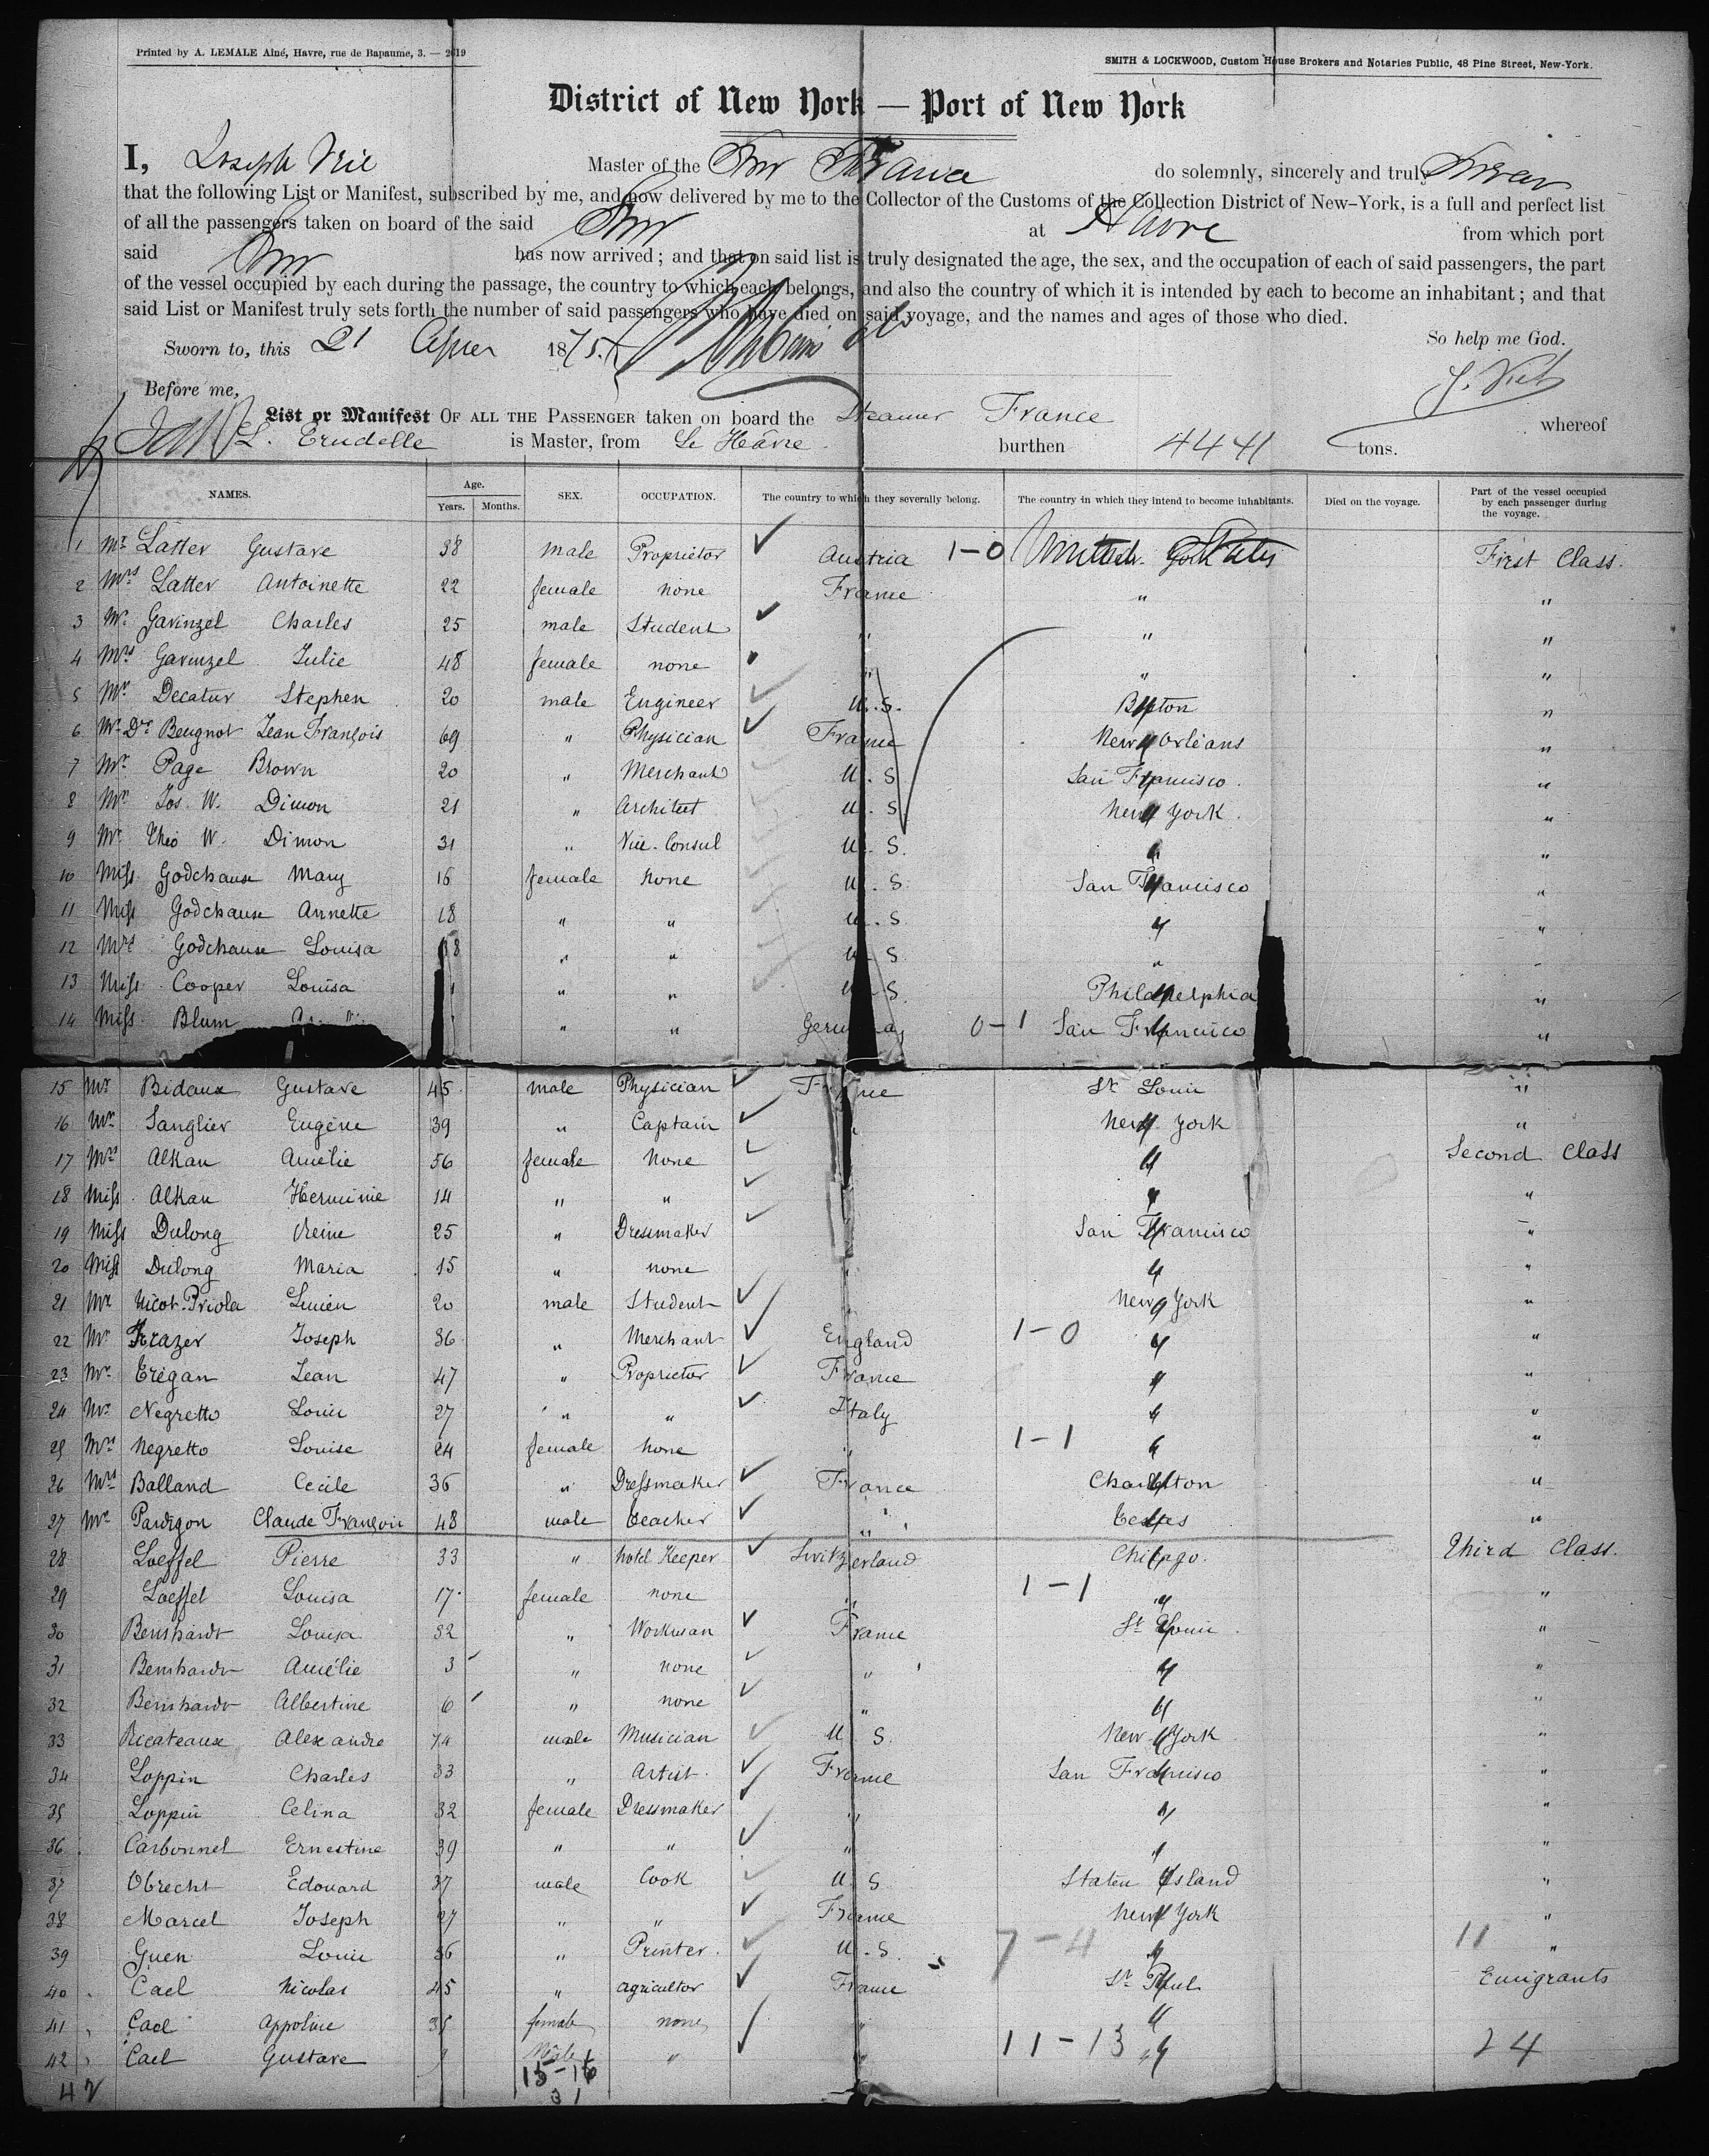 Printed by A. LEMALE Aîné, Havre, rue de Bapaume, 3. — 2619
SMITH & LOCKWOOD, Custom House Brokers and Notaries Public, 48 Pine Street, New-York.
District of New York — Port of New York
I, Joseph Master of the Str France do solemnly, sincerely and truly swear
that the following List or Manifest, subscribed by me, and now delivered by me to the Collector of the Customs of the Collection District of New-York, is a full and perfect list
of all the passengers taken on board of the said Str at Havre from which port
said Str has now arrived; and that on said list is truly designated the age, the sex, and the occupation of each of said passengers, the part
of the vessel occupied by each during the passage, the country to which each belongs, and also the country of which it is intended by each to become an inhabitant; and that
said List or Manifest truly sets forth the number of said passengers who have died on said voyage, and the names and ages of those who died.
So help me God.
Sworn to, this 21 1875.
Before me,
List or Manifest OF ALL THE PASSENGER taken on board the Steamer France whereof
L. Trudelle is Master, from Le Hâvre burthen 4441 tons.
NAMES. Age. Years. Months. SEX. OCCUPATION. The country to which they severally belong. The country in which they intend to become inhabitants. Died on the voyage. Part of the vessel occupied by each passenger during the voyage.
1 Mr Latter Gustave 38 male Proprietor Austria 1-0 First Class.
2 Mrs Latter Antoinette 22 female none France " "
3 Mr Gavinzel Charles 25 male Student " " "
4 Mrs Gavinzel Julie 48 female none " " "
5 Mr Decatur Stephen 20 male Engineer U.S. Boston "
6 Mr Dr Beugnot Jean François 69 " Physician France New Orléans "
7 Mr Page Brown 20 " Merchant U.S. San Francisco "
8 Mr Jos. W. Dimon 21 " Architect U.S. New York "
9 Mr Theo W. Dimon 31 " Vice-Consul U.S. " "
10 Miss Godchaux Mary 16 female none U.S. San Francisco "
11 Miss Godchaux Annette 18 " " U.S. " "
12 Mrs Godchaux Louisa 38 " " U.S. " "
13 Miss Cooper Louisa " " U.S. Philadelphia "
14 Miss Blum " " Germany 0-1 San Francisco "
15 Mr Bidaux Gustave 45 male Physician France St Louis "
16 Mr Sanglier Eugène 39 " Captain " New York "
17 Mrs Alkan Amélie 56 female none " Second Class
18 Miss Alkan Herminie 14 " " " "
19 Miss Dulong Reine 25 " Dressmaker San Francisco "
20 Miss Dulong Maria 15 " none " " "
21 Mr Nicot-Priola Lucien 20 male Student " New York "
22 Mr Frazer Joseph 36 " Merchant England 1-0 " "
23 Mr Trégan Jean 47 " Proprietor France " "
24 Mr Negretto Louis 27 " " Italy " "
25 Mrs Negretto Louise 24 female none " 1-1 " "
26 Mrs Balland Cecile 36 " Dressmaker France Charleston "
27 Mr Pardigon Claude François 48 male teacher " "
28 Loeffel Pierre 33 " hotel Keeper Switzerland Chicago. Third Class.
29 Loeffel Louisa 17 female none " 1-1 " "
30 Bernhardt Louisa 32 " Workman France St Louis "
31 Bernhardt Amélie 3 " none " " "
32 Bernhardt Albertine 6 " none " " "
33 Ricateaux Alexandre 74 male Musician U.S. New York "
34 Loppin Charles 33 " Artist France San Francisco "
35 Loppin Celina 32 female Dressmaker " " "
36 Carbonnel Ernestine 39 " " " " "
37 Obrecht Edouard 37 male Cook U.S. Staten Island "
38 Marcel Joseph 27 " " France New York "
39 Guen Louis 36 " Printer U.S. 7-4 " 11 "
40 Cael Nicolas 45 " agricultor France St Paul Emigrants
41 Cael Appoline 35 female none " "
42 Cael Gustave male " " 11-13 " 24
42 15-16
31